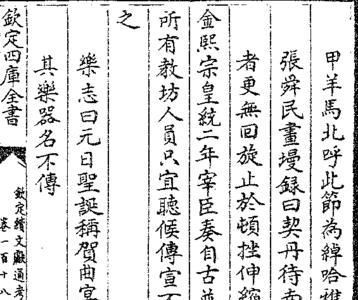 甲羊馬北呼此節為綽哈雅
張舜民畫墁録曰契丹待南
者更無回旋止於頓挫伸縮
金熙宗皇統二年宰臣奏自古並
所有教坊人員只宜聽候傳宣不
之
樂志曰元日聖誕稱賀曲宴
其樂器名不傳
欽定四庫全書
欽定續文獻通考
卷一百十八